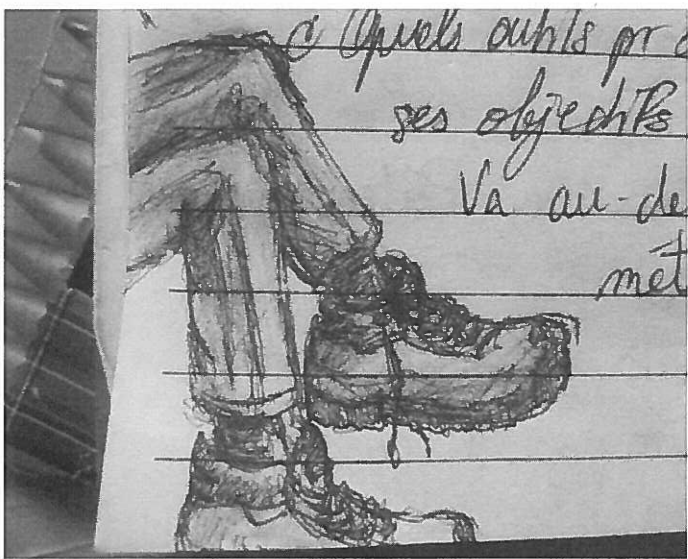 Quels outils pr
ses objectifs
Va au-de
mét